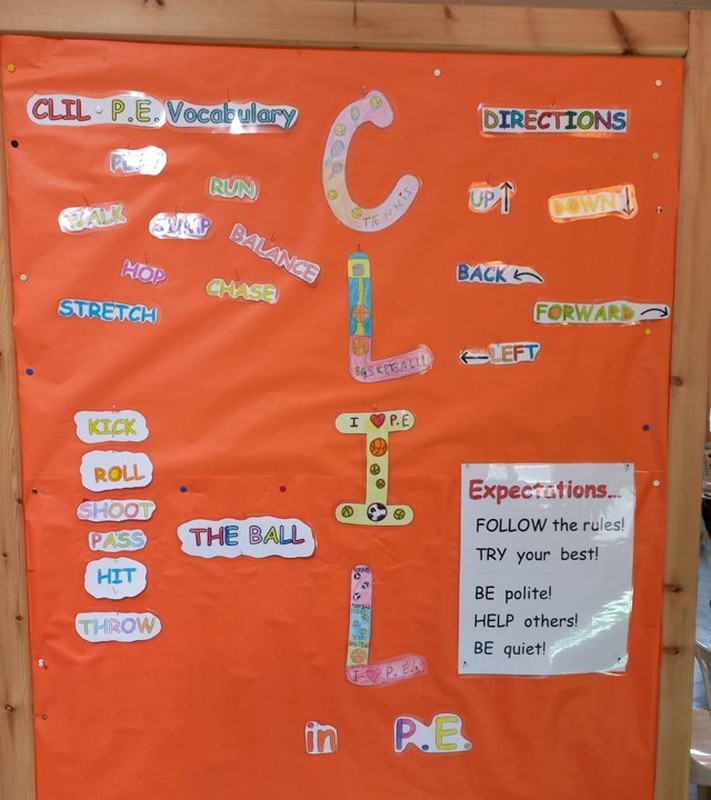 CLIL - P.E. Vocabulary
PLAY
RUN
WALK
JUMP
BALANCE
HOP
CHASE
STRETCH
KICK
ROLL
SHOOT
PASS
HIT
THROW
THE BALL
C
TENNIS
L
BASKETBALL
I
I ❤ P.E
L
I ❤ P.E.
in P.E.
DIRECTIONS
UP ↑
DOWN ↓
BACK
FORWARD
← LEFT
Expectations...
FOLLOW the rules!
TRY your best!
BE polite!
HELP others!
BE quiet!